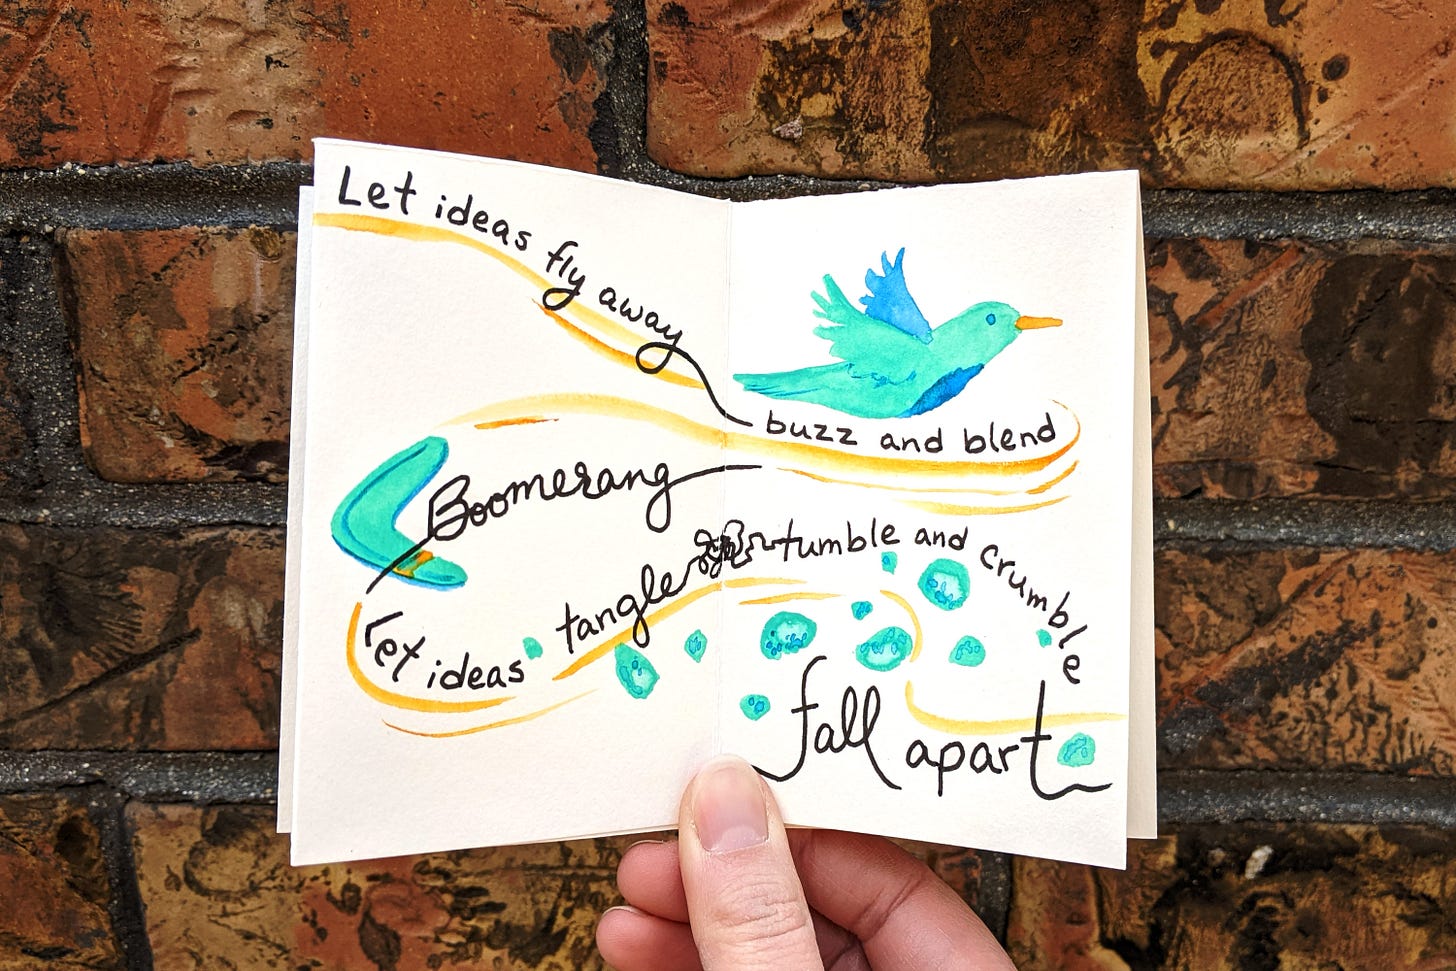 Let ideas fly away
buzz and blend
Boomerang
Let ideas tangle
tumble and crumble
fall apart